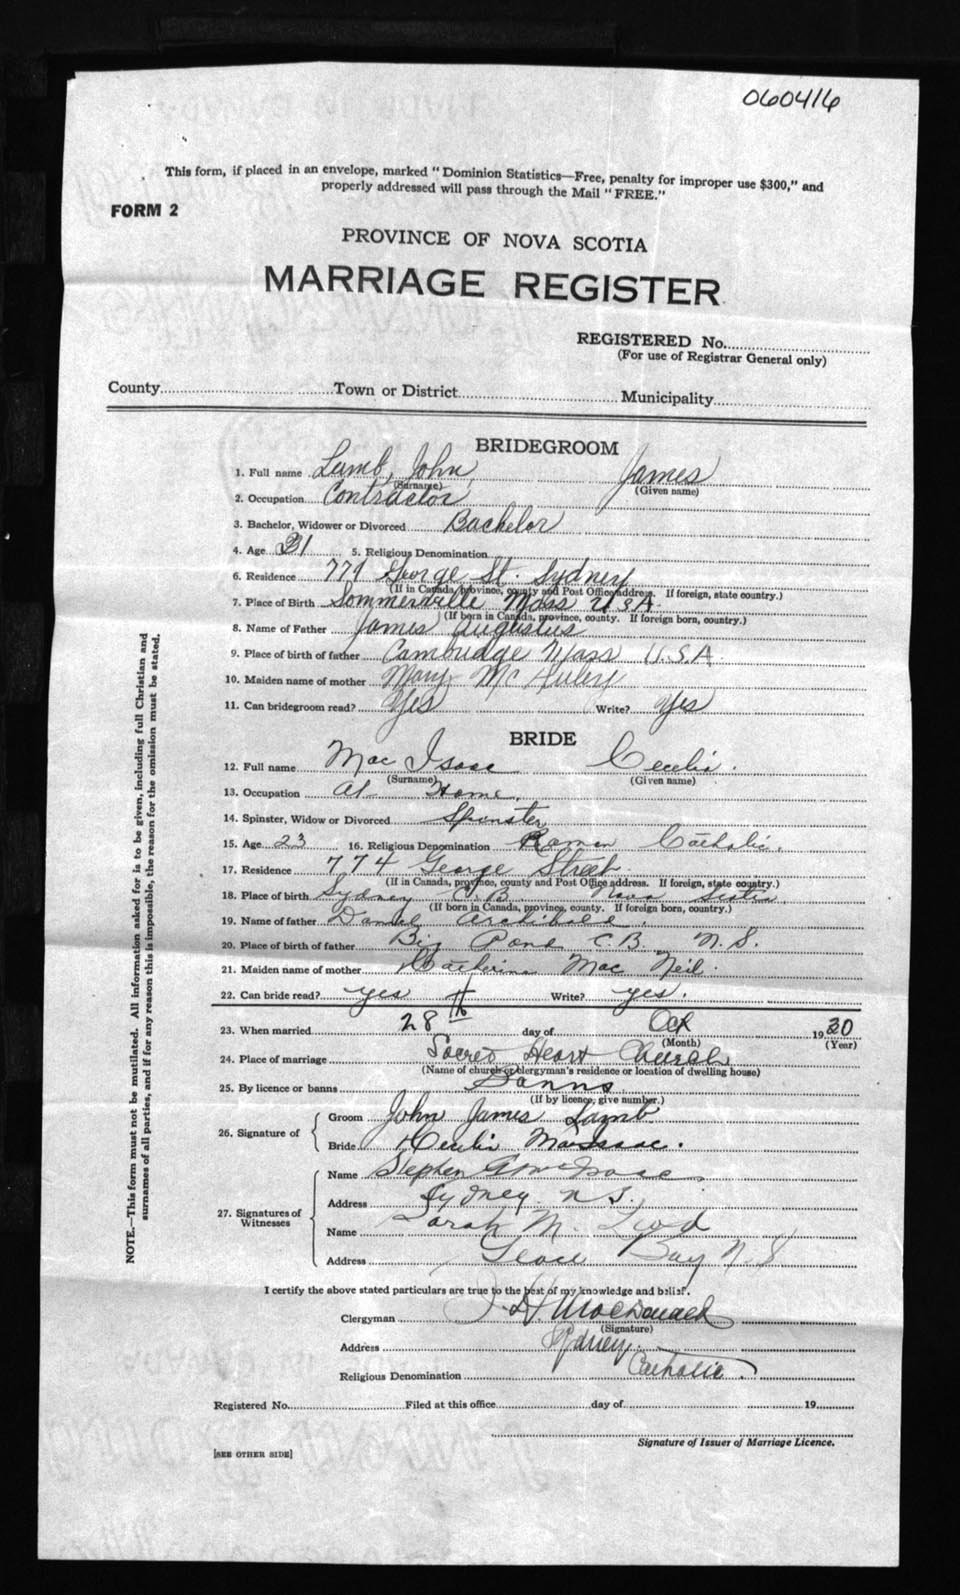 060416
This form, if placed in an envelope, marked "Dominion Statistics—Free, penalty for improper use $300," and
properly addressed will pass through the Mail "FREE."
FORM 2
PROVINCE OF NOVA SCOTIA
MARRIAGE REGISTER
REGISTERED No.
(For use of Registrar General only)
County Town or District Municipality
BRIDEGROOM
1. Full name Lamb, John, James
(Surname) (Given name)
2. Occupation Contractor
3. Bachelor, Widower or Divorced Bachelor
4. Age 31 5. Religious Denomination
6. Residence 774 George St. Sydney
(If in Canada, province, county and Post Office address. If foreign, state country.)
7. Place of Birth Sommerville Mass U.S.A.
(If born in Canada, province, county. If foreign born, country.)
8. Name of Father James Augustus
9. Place of birth of father Cambridge Mass U.S.A
10. Maiden name of mother Mary McAuley
11. Can bridegroom read? Yes Write? Yes
BRIDE
12. Full name Mac Isaac Cecelia.
(Surname) (Given name)
13. Occupation At Home.
14. Spinster, Widow or Divorced Spinster
15. Age 23 16. Religious Denomination Roman Catholic.
17. Residence 774 George Street
(If in Canada, province, county and Post Office address. If foreign, state country.)
18. Place of birth Sydney C.B. Nova Scotia.
(If born in Canada, province, county. If foreign born, country.)
19. Name of father Daniel Archibald.
20. Place of birth of father Big Pond C.B. N.S.
21. Maiden name of mother Catherine Mac Neil.
22. Can bride read? yes Write? yes.
23. When married 28th day of Oct 1930
(Month) (Year)
24. Place of marriage Sacred Heart Church
(Name of church or clergyman's residence or location of dwelling house)
25. By licence or banns Banns
(If by licence, give number.)
26. Signature of
Groom John James Lamb
Bride Cecelia MacIsaac.
27. Signatures of Witnesses
Name Stephen McIsaac
Address Sydney N.S.
Name Sarah M.
Address Glace Bay N.S
I certify the above stated particulars are true to the best of my knowledge and belief.
Clergyman J. H. MacDonald
(Signature)
Address Sydney
Religious Denomination Catholic.
Registered No. Filed at this office day of 19
Signature of Issuer of Marriage Licence.
[SEE OTHER SIDE]
NOTE.—This form must not be mutilated. All information asked for is to be given, including full Christian and
surnames of all parties, and if for any reason this is impossible, the reason for the omission must be stated.